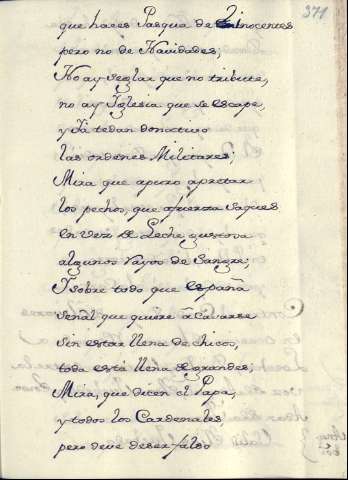 371
que haces Pasqua de Innocentes
pero no de Navidades;
No ay seglar que no tribute,
no ay Iglesia que se escape,
y Yá tedan donativo
las ordenes Militares;
Mira que apuro apretar
los pechos, que afuerza saques
en vez de Leche gustosa
algunos rayos de Sangre;
Y sobre todo que españa
señal que quiere acavarse
sin estar llena de chicos,
toda está llena de grandes;
Mira, que dicen el Papa,
y todos los Cardenales
pero deve deser falso